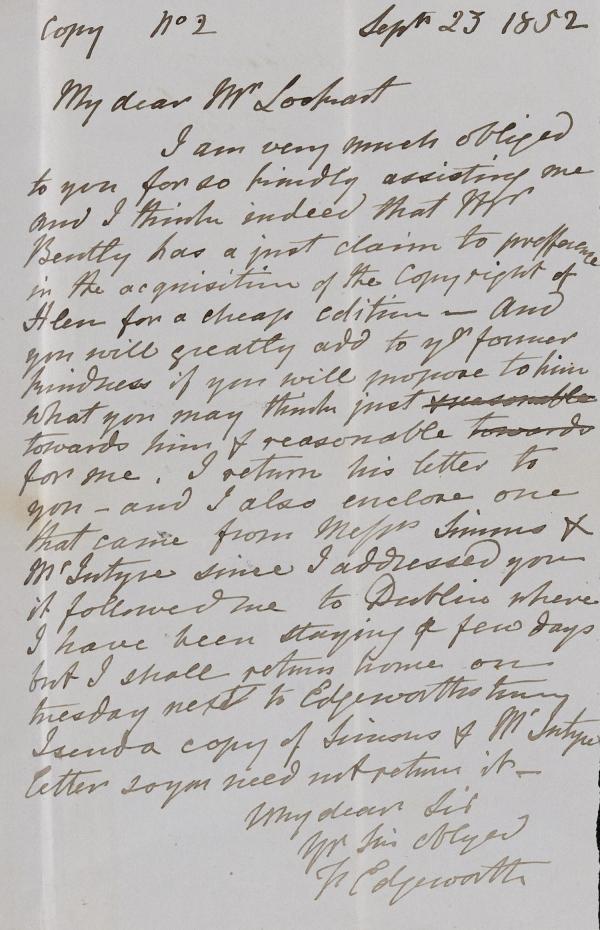 Copy No 2 Septr 23 1852
My dear Mr Lockhart
I am very much obliged
to you for so kindly assisting me
and I think indeed that Mr
Bently has a just claim to prefference
in the acquisition of the Copyright of
Helen for a cheap edition — And
you will greatly add to yr former
kindness if you will propose to him
what you may think just & reasonable
towards him & reasonable towards
for me. I return his letter to
you - and I also enclose one
that came from Messrs Simms &
McIntyre since I addressed you
it followed me to Dublin where
I have been staying a few days
but I shall return home on
tuesday next to Edgeworthstown
I send a copy of Simms & McIntyre
letter so you need not return it —
My dear Sir
Yr Sin obliged
Edgeworth